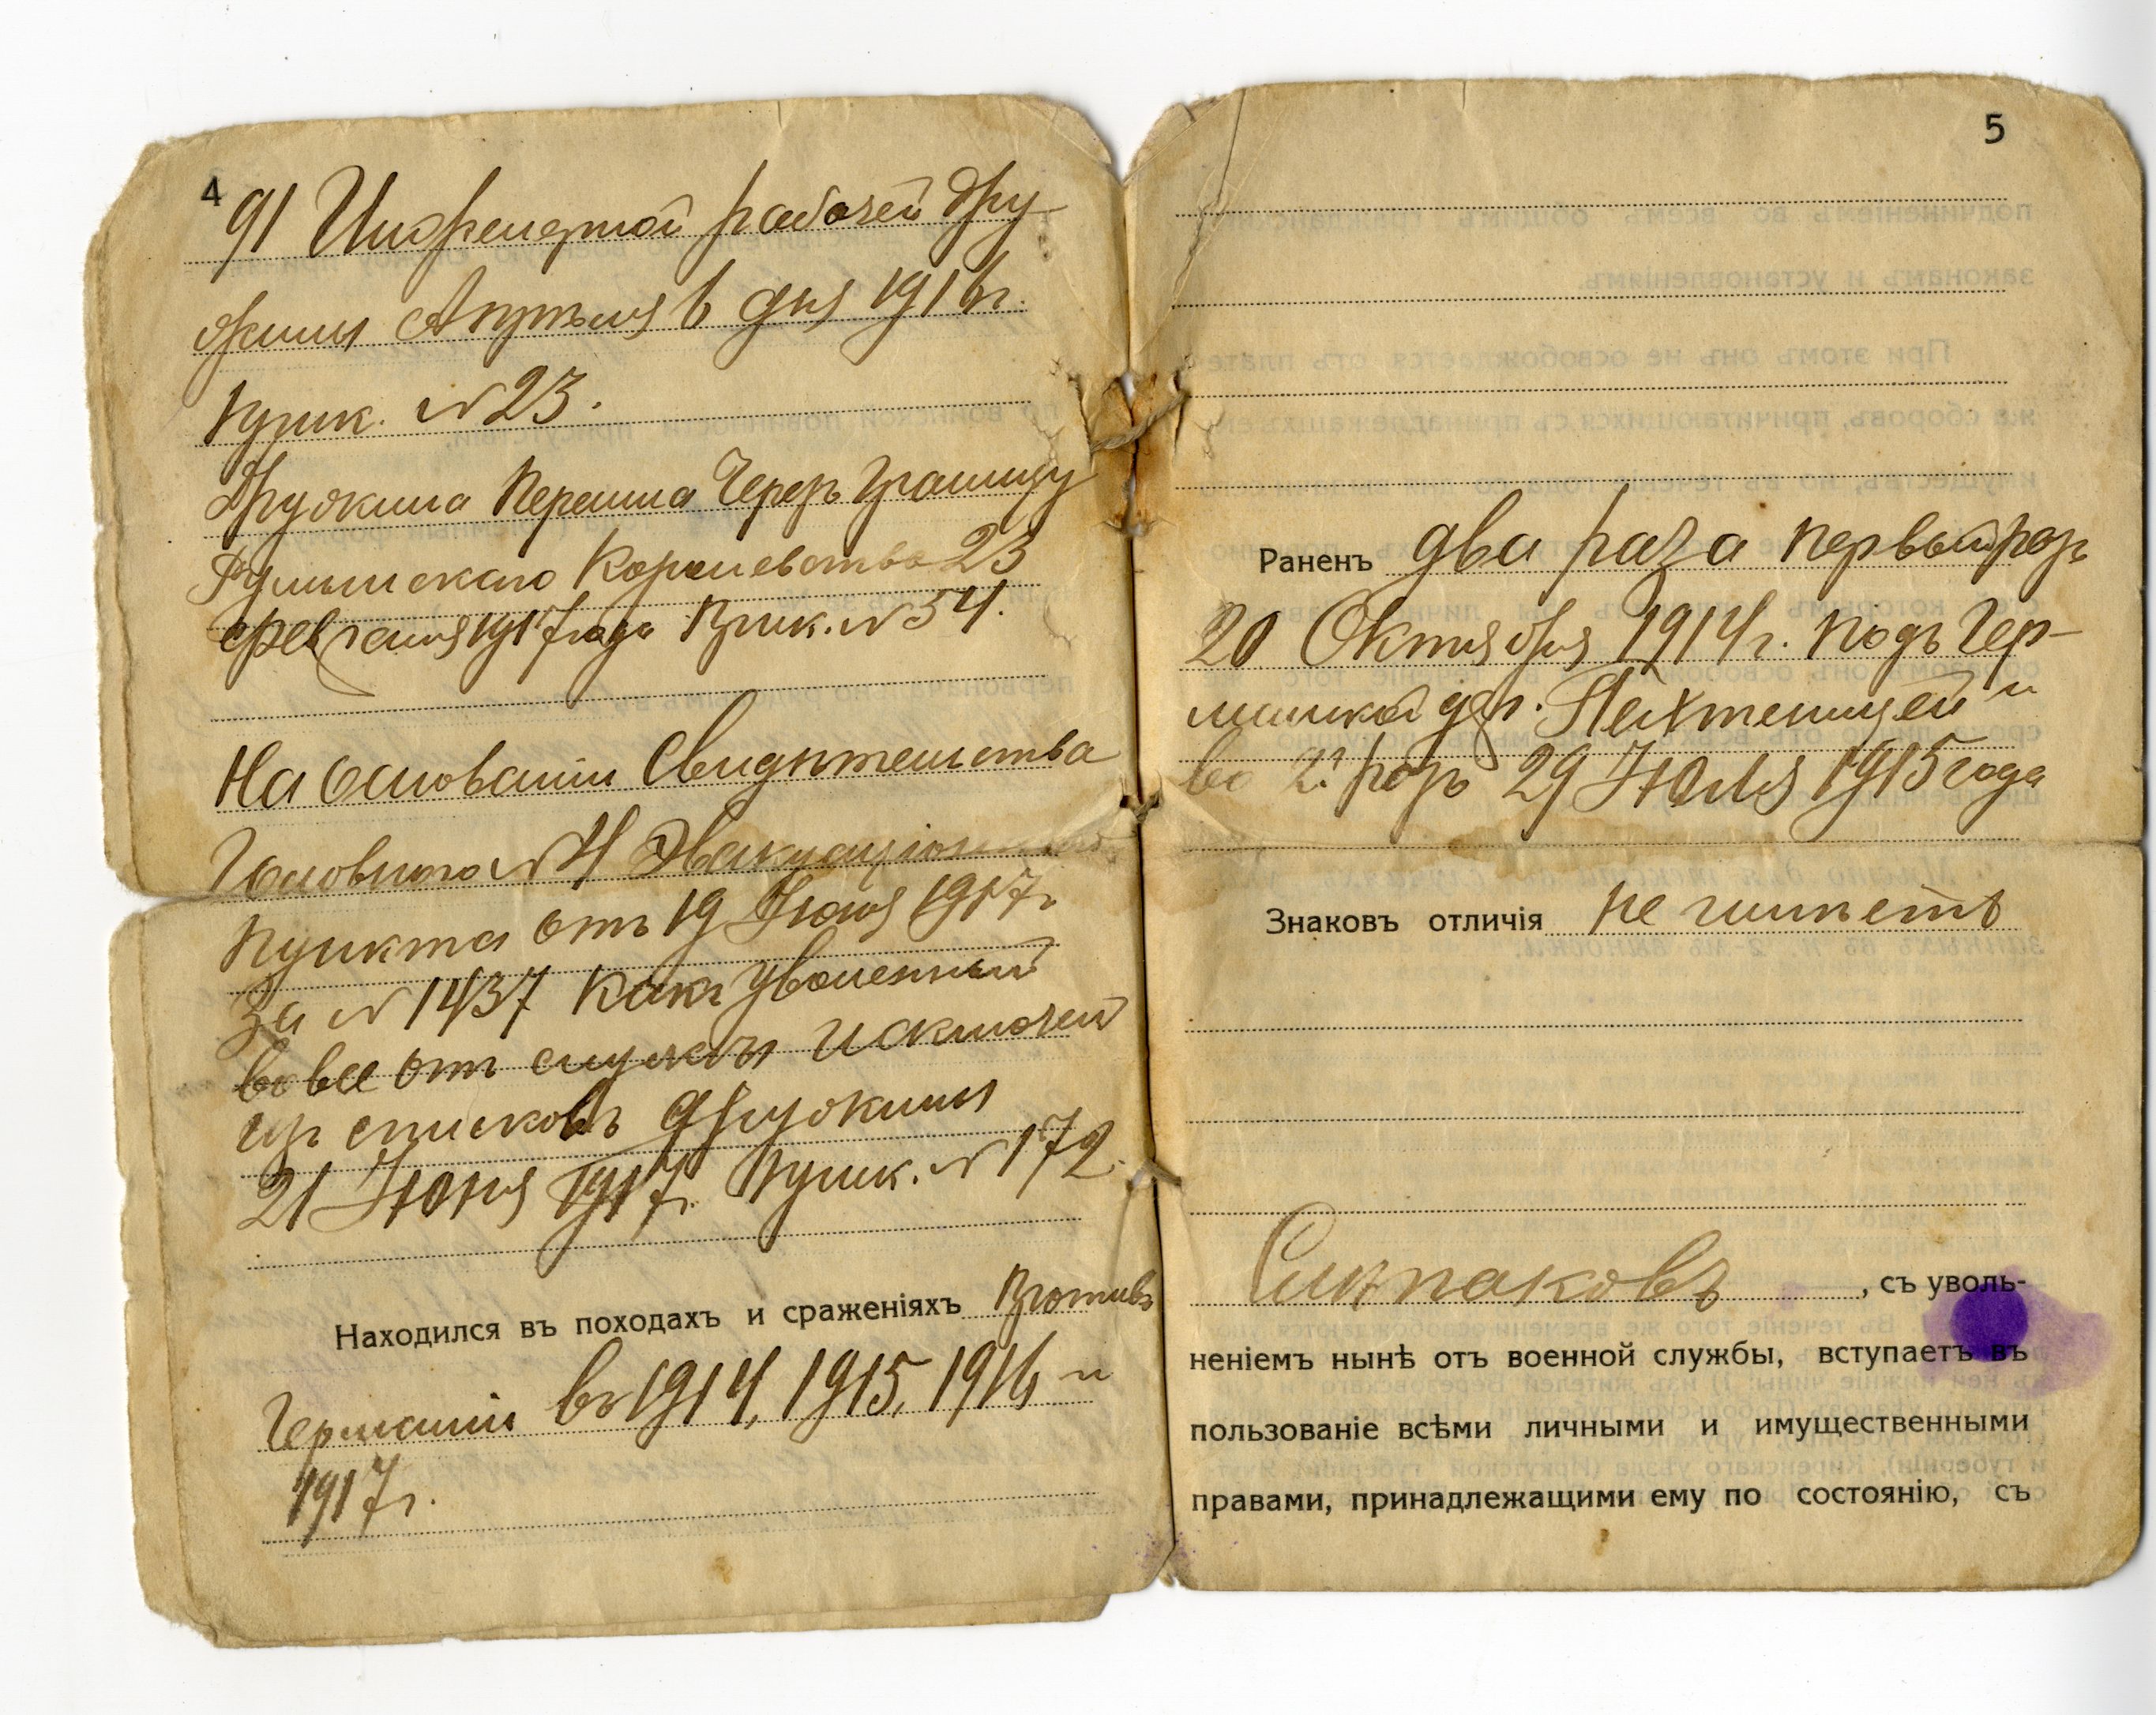 4
91 Инженерной рабочей дру-
жины Апрѣля 6 дня 1916 г.
Прик. №23.
Дружина перешла Черезъ границу
Румынскаго Королевства 23
февраля 1917 года Прик. №54.
На основаніи Свидѣтельства
Головного № Эвакуаціон
Пункта отъ 19 Іюня 1917 г
За №1437 какъ уволенный
вовсе отъ службы исключен
изъ списковъ дружины
21 Іюня 1917 г. Прик. №172.
Находился въ походахъ и сраженіяхъ Противъ
Германіи въ 1914, 1915, 1916 и
1917 г.
5
Раненъ два раза первый разъ
20 Октября 1914 г. подъ Гер-
манской дер. и
во 2й разъ 29 Іюля 1915 года
Знаковъ отличія не имѣетъ
, съ уволь-
неніемъ нынѣ отъ военной службы, вступаетъ въ
пользованіе всѣми личными и имущественными
правами, принадлежащими ему по состоянію, съ